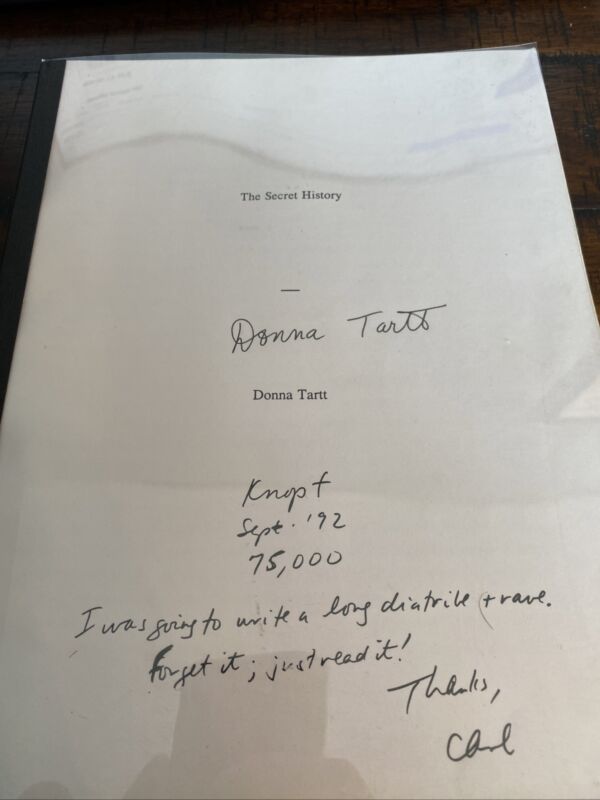 The Secret History
—
Donna Tartt
Donna Tartt
Knopf
Sept. '92
75,000
I was going to write a long diatribe + rave.
Forget it; just read it!
Thanks,